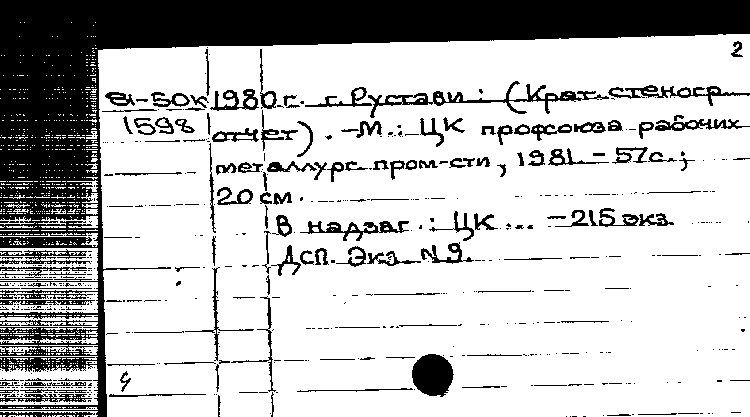 2
81-50к 1980 г. г. Рустави : (Крат. стеногр.
1598 отчет). -М.: ЦК профсоюза рабочих
металлург. пром-сти, 1981. - 57с.;
20 см.
В надзаг.: ЦК ... - 215 экз.
Дсп. Экз. N 9.